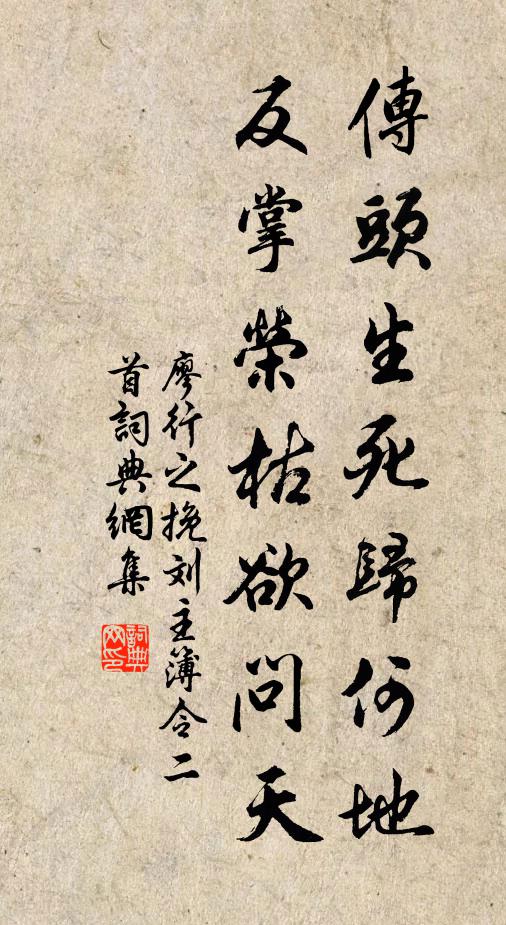 傳頭生死歸何地
反掌榮枯欲問天
廖行之挽刘主薄令二
首詞典網集
詞典
网印